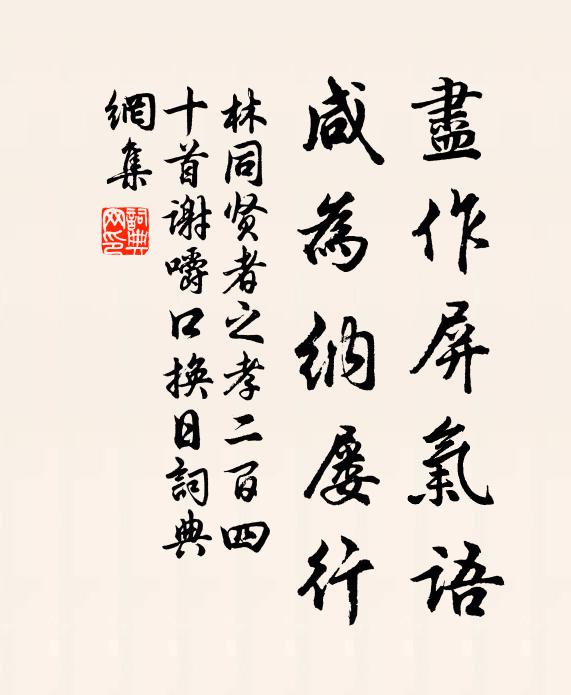 盡作屏氣語
咸為納屡行
林同贤者之孝二百四
十首谢嚼口换日詞典
網集
詞典网印